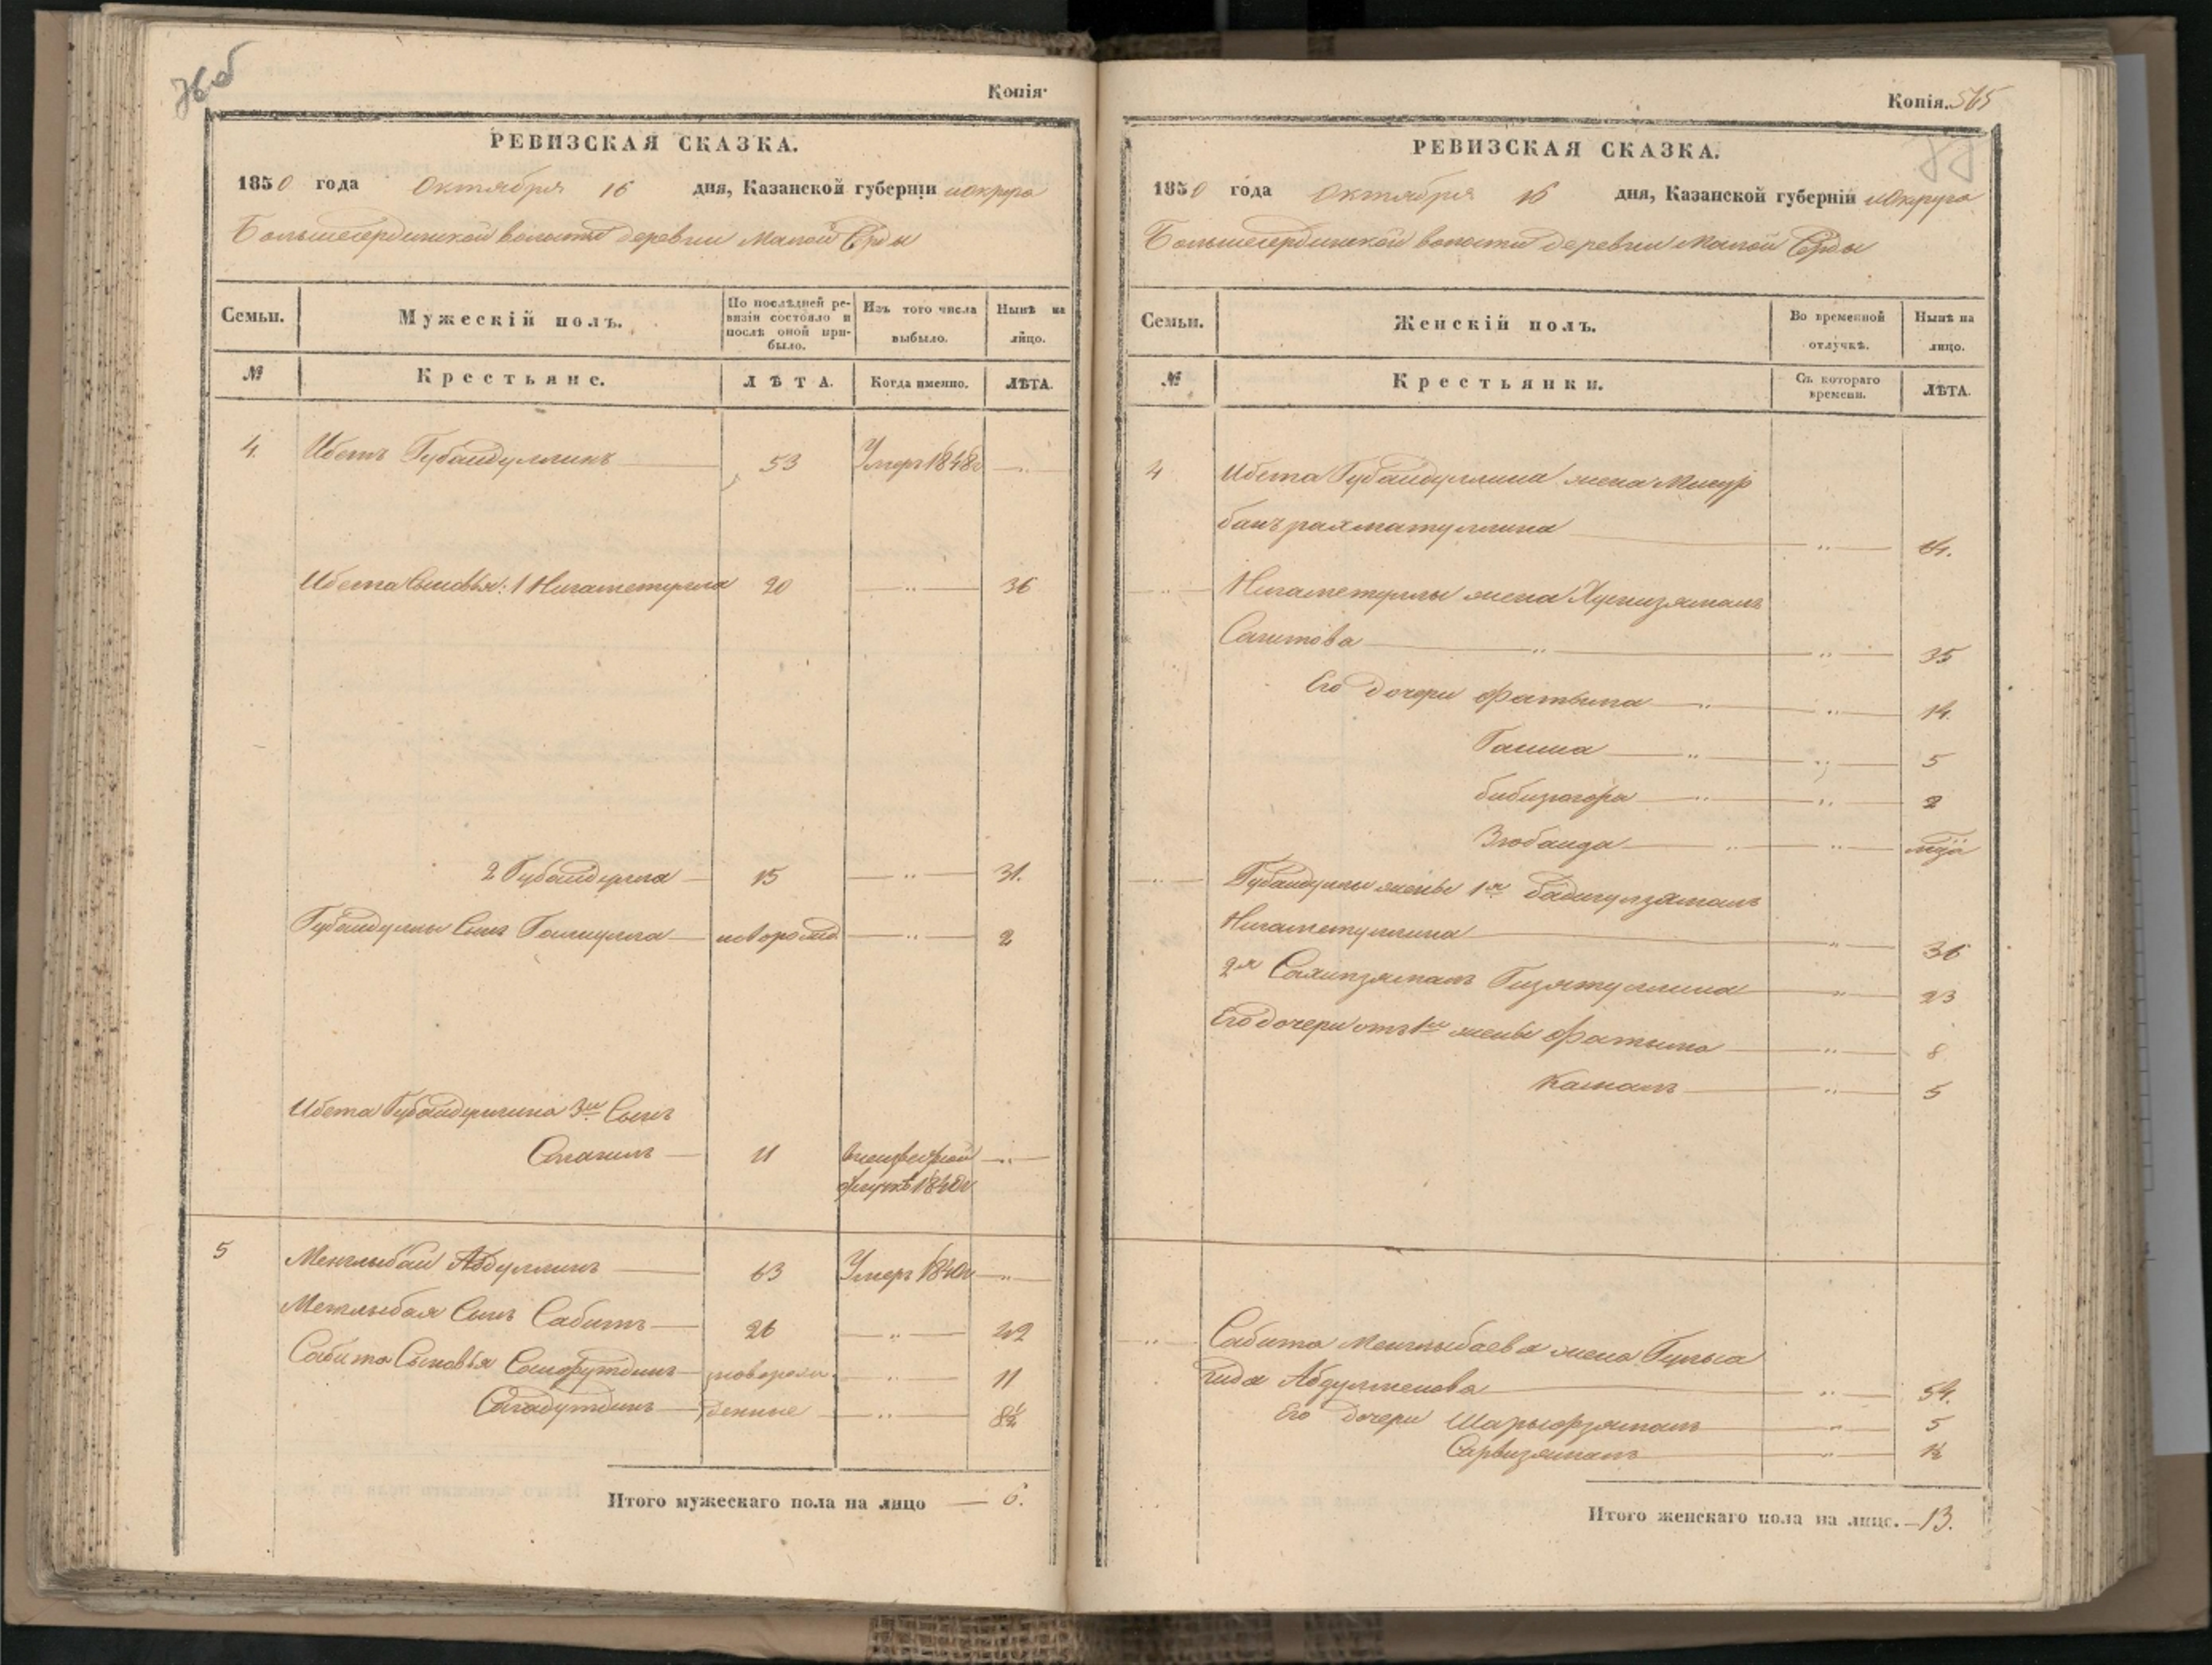 Копія
РЕВИЗСКАЯ СКАЗКА.
1850 года Октября 16 дня, Казанской губерніи и округа
Большесердинской волости деревни Малой Сэрды
Семьи.
Мужескій полъ.
По послѣдней ре-
визіи состояло и
послѣ оной при-
было.
Изъ того числа
выбыло.
Нынѣ на
лицо.
№
Крестьяне.
ЛѢТА.
Когда именно.
ЛѢТА.
4. Ибетъ Губайдуллинъ 53 Умеръ 1848г
Ибета Сыновья: 1 Нигаметулла 20 36
2 Губайдулла 15 31.
Губайдуллы Сынъ новорожд 2
Ибета Губайдуллина 3й Сынъ
11
1840г
5 Менглыбай Абдуллинъ 63 Умеръ 1840г
Менглыбая Сынъ Сабитъ 26 42
Сабита Сыновья новорож 11
денные 8½
Итого мужескаго пола на лицо 6.
Копія. 565
РЕВИЗСКАЯ СКАЗКА.
1850 года Октября 16 дня, Казанской губерніи и округа
Большесердинской волости деревни Малой Сэрды
Семьи.
Женскій полъ.
Во временной
отлучкѣ.
Нынѣ на
лицо.
№
Крестьянки.
Съ котораго
времени.
ЛѢТА.
4 Ибета Губайдуллина жена
банъ рахматуллина
Нигаметуллы жена Хуснизямалъ
Сагитова 35
Его дочери Фатыма 14.
5
2
Губайдуллы жены 1я Бадигулзамалъ
Нигаметуллина 36
2я Гизятуллина 23
Его дочери отъ 1й жены Фатыма 8
Камалъ 5
Сабита Менглыбаева жена
54.
Его дочери 5
Сарвизямалъ 1½
Итого женскаго пола на лицо. 13.